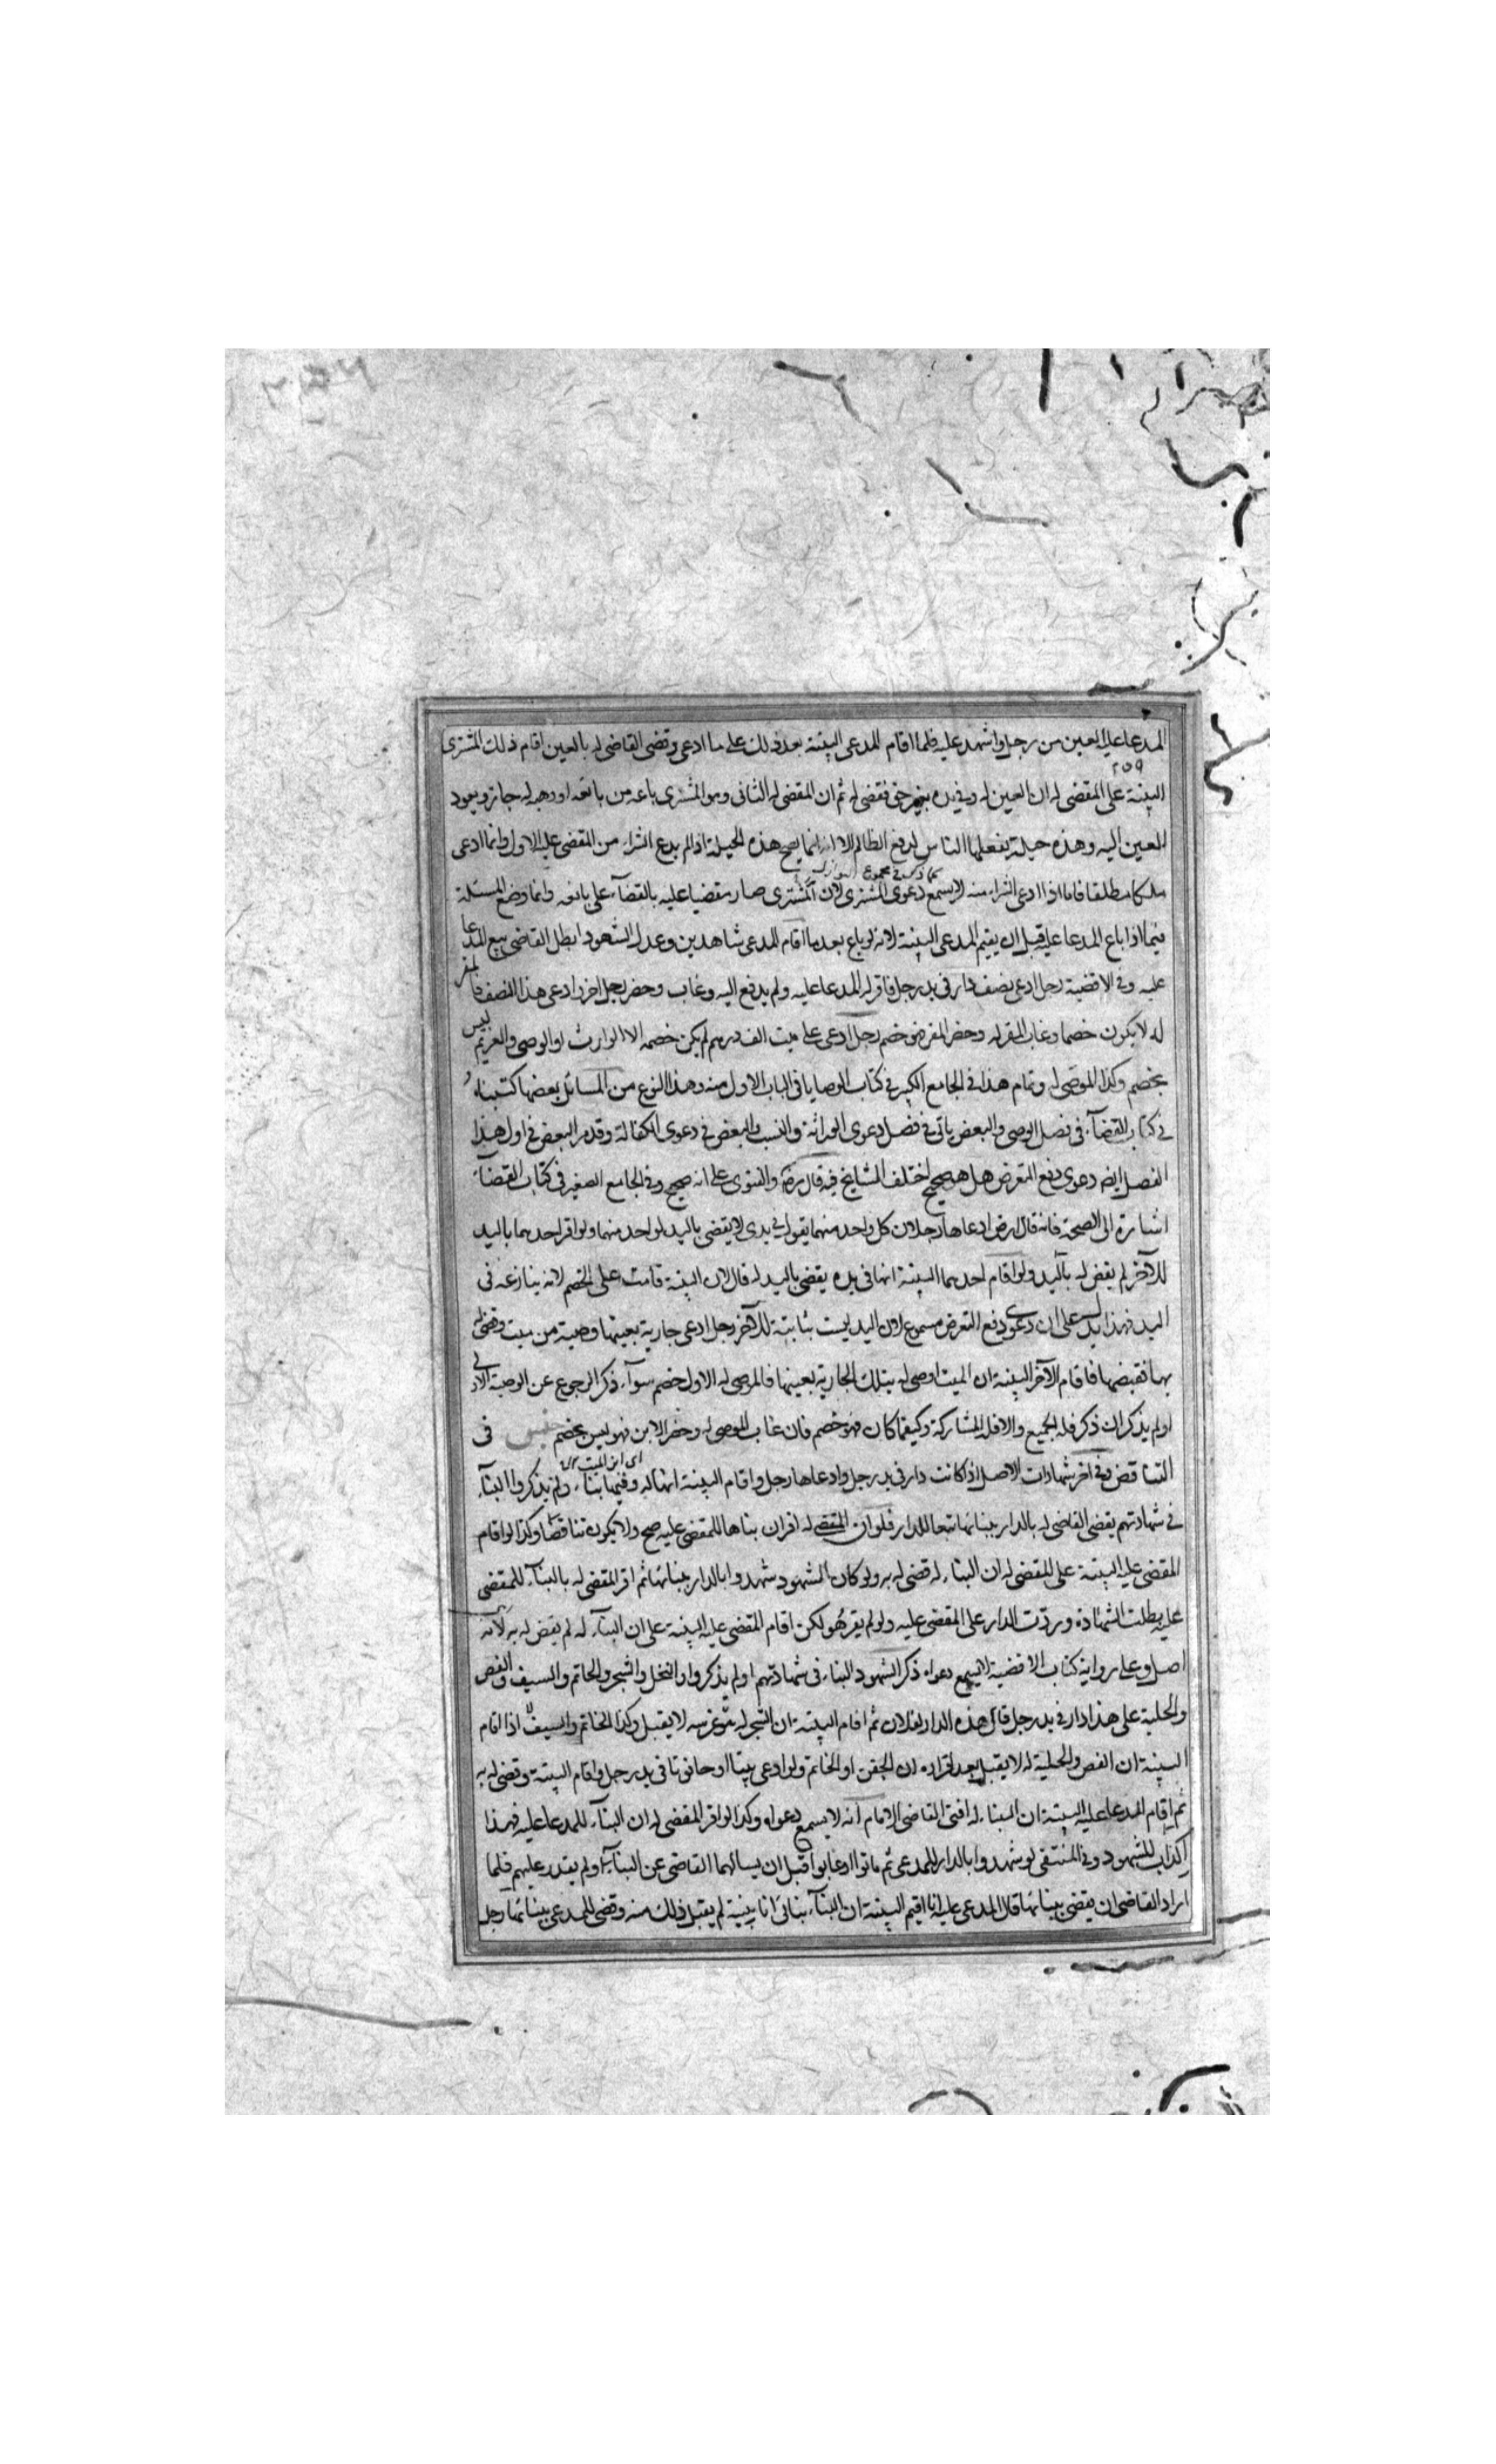 المدعا عليه العين من رجل واشهد عليه فلما اقام المدعى البينة بعد ذلك على ما ادعى وقضى القاضى له بالعين اقام ذلك المشترى
٢٥٩
البينة على المقضى له ان العين له وفى يده بغير حق فقضى له ثم ان المقضى له الثانى وهو المشترى باعه من بائعه او وهبه له جاز ويعود
العين اليه وهذه حيلة يفعلها الناس لدفع الظالم الا انه انما يصح هذه الحيلة اذا لم يدع الشراء من المقضى عليه الاول وانما ادعى
ملكا مطلقا فاما اذا ادعى الشراء منه لا يسمع دعوى المشترى لان المشترى صار مقضيا عليه بالقضآء على بائعه وانما وضع المسئلة
فيما اذا باع المدعا عليه قبل ان يقيم المدعى البينة لانه لو باع بعد ما اقام المدعى شاهدين وعدل الشهود ابطل القاضى بيع المدعا
عليه وفى الاقضية رجل ادعى نصف دار فى يد رجل فاقر له المدعا عليه ولم يدفع اليه وغاب وحضر رجل اخر ادعى هذا النصف فالمقر
له لا يكون خصما وغاب المقر له وحضر المقر فهو خصم رجل ادعى على ميت الف درهم لم يكن خصمه الا الوارث او الوصى والغريم ليس
بخصم وكذا الموصى له وتمام هذا فى الجامع الكبير فى كتاب الوصايا فى الباب الاول منه وهذا النوع من المسائل بعضها كتبناه
فى كتاب القضآء فى فصل الوصى والبعض ياتى فى فصل دعوى الوراثة والنسب والبعض فى دعوى الكفالة وقد مر البعض فى اول هذا
الفصل ايضا دعوى دفع التعرض هل هو صحيح اختلف المشايخ فيه قال رضه والفتوى على انه صحيح وفى الجامع الصغير فى كتاب القضآء
اشارة الى الصحة فانه قال ارض ادعاها رجلان كل واحد منهما يقول فى يدى لا يقضى باليد لواحد منهما ولو اقر احدهما باليد
للآخر لم يقض له باليد ولو اقام احدهما البينة انها فى يده يقضى باليد له قال لان البينة قامت على الخصم لانه ينازعه فى
اليد فهذا يدل على ان دعوى دفع التعرض مسموع لان اليد ليست بثابتة للآخر رجل ادعى جارية بعينها وصية من ميت وقضى له
بها فقبضها فاقام الآخر البينة ان الميت اوصى له بتلك الجارية بعينها فالموصى له الاول خصم سوآء ذكر الرجوع عن الوصية الاولى
او لم يذكر ان ذكر فله الجميع والا فله المشاركة وكيفما كان فهو خصم فان غاب الموصى له وحضر الابن فهو ليس بخصم جنس فى
اى ابن الميت
التناقض وفى اخر شهادات الاصل اذا كانت دار فى يد رجل وادعاها رجل واقام البينة انها له وفيها بناء ولم يذكروا البنآء
فى شهادتهم يقضى القاضى له بالدار ببنائها تبعا للدار فلو ان المقضى له اقر ان بناها للمقضى عليه صح ولا يكون تناقضا وكذا لو اقام
المقضى عليه البينة على المقضى له ان البناء له قضى له به ولو كان الشهود شهدوا بالدار ببنائها ثم اقر المقضى له بالبنآء للمقضى
عليه بطلت الشهادة وردت الدار على المقضى عليه ولو لم يقر هو لكن اقام المقضى عليه البينة على ان البنآء له لم يقض له به لانه
اصل وعلى رواية كتاب الاقضية لا يسمع دعواه ذكر الشهود البناء فى شهادتهم او لم يذكروا والنخل والشجر والخاتم والسيف والفص
والحلية على هذا دار فى يد رجل قال هذه الدار لفلان ثم اقام البينة ان الشجر له غرسه لا يقبل وكذا الخاتم والسيف اذا اقام
البينة ان الفص والحلية له لا يقبل بعد اقراره ان الجفن او الخاتم ولو ادعى بيتا او حانوتا فى يد رجل واقام البينة وقضى له به
ثم اقام المدعا عليه البينة ان البناء له افتى القاضى الامام انه لا يسمع دعواه وكذا لو اقر المقضى له ان البنآء للمدعا عليه فهذا
اكذاب للشهود وفى المنتقى لو شهدوا بالدار للمدعى ثم ماتوا او غابوا قبل ان يسالهما القاضى عن البنآء ولم يقدر عليهم فلما
اراد القاضى ان يقضى ببنائها قال المدعى عليه انا اقيم البينة ان البنآء بنائى انا بنيته لم يقبل ذلك منه وقضى للمدعى ببنائها رجل